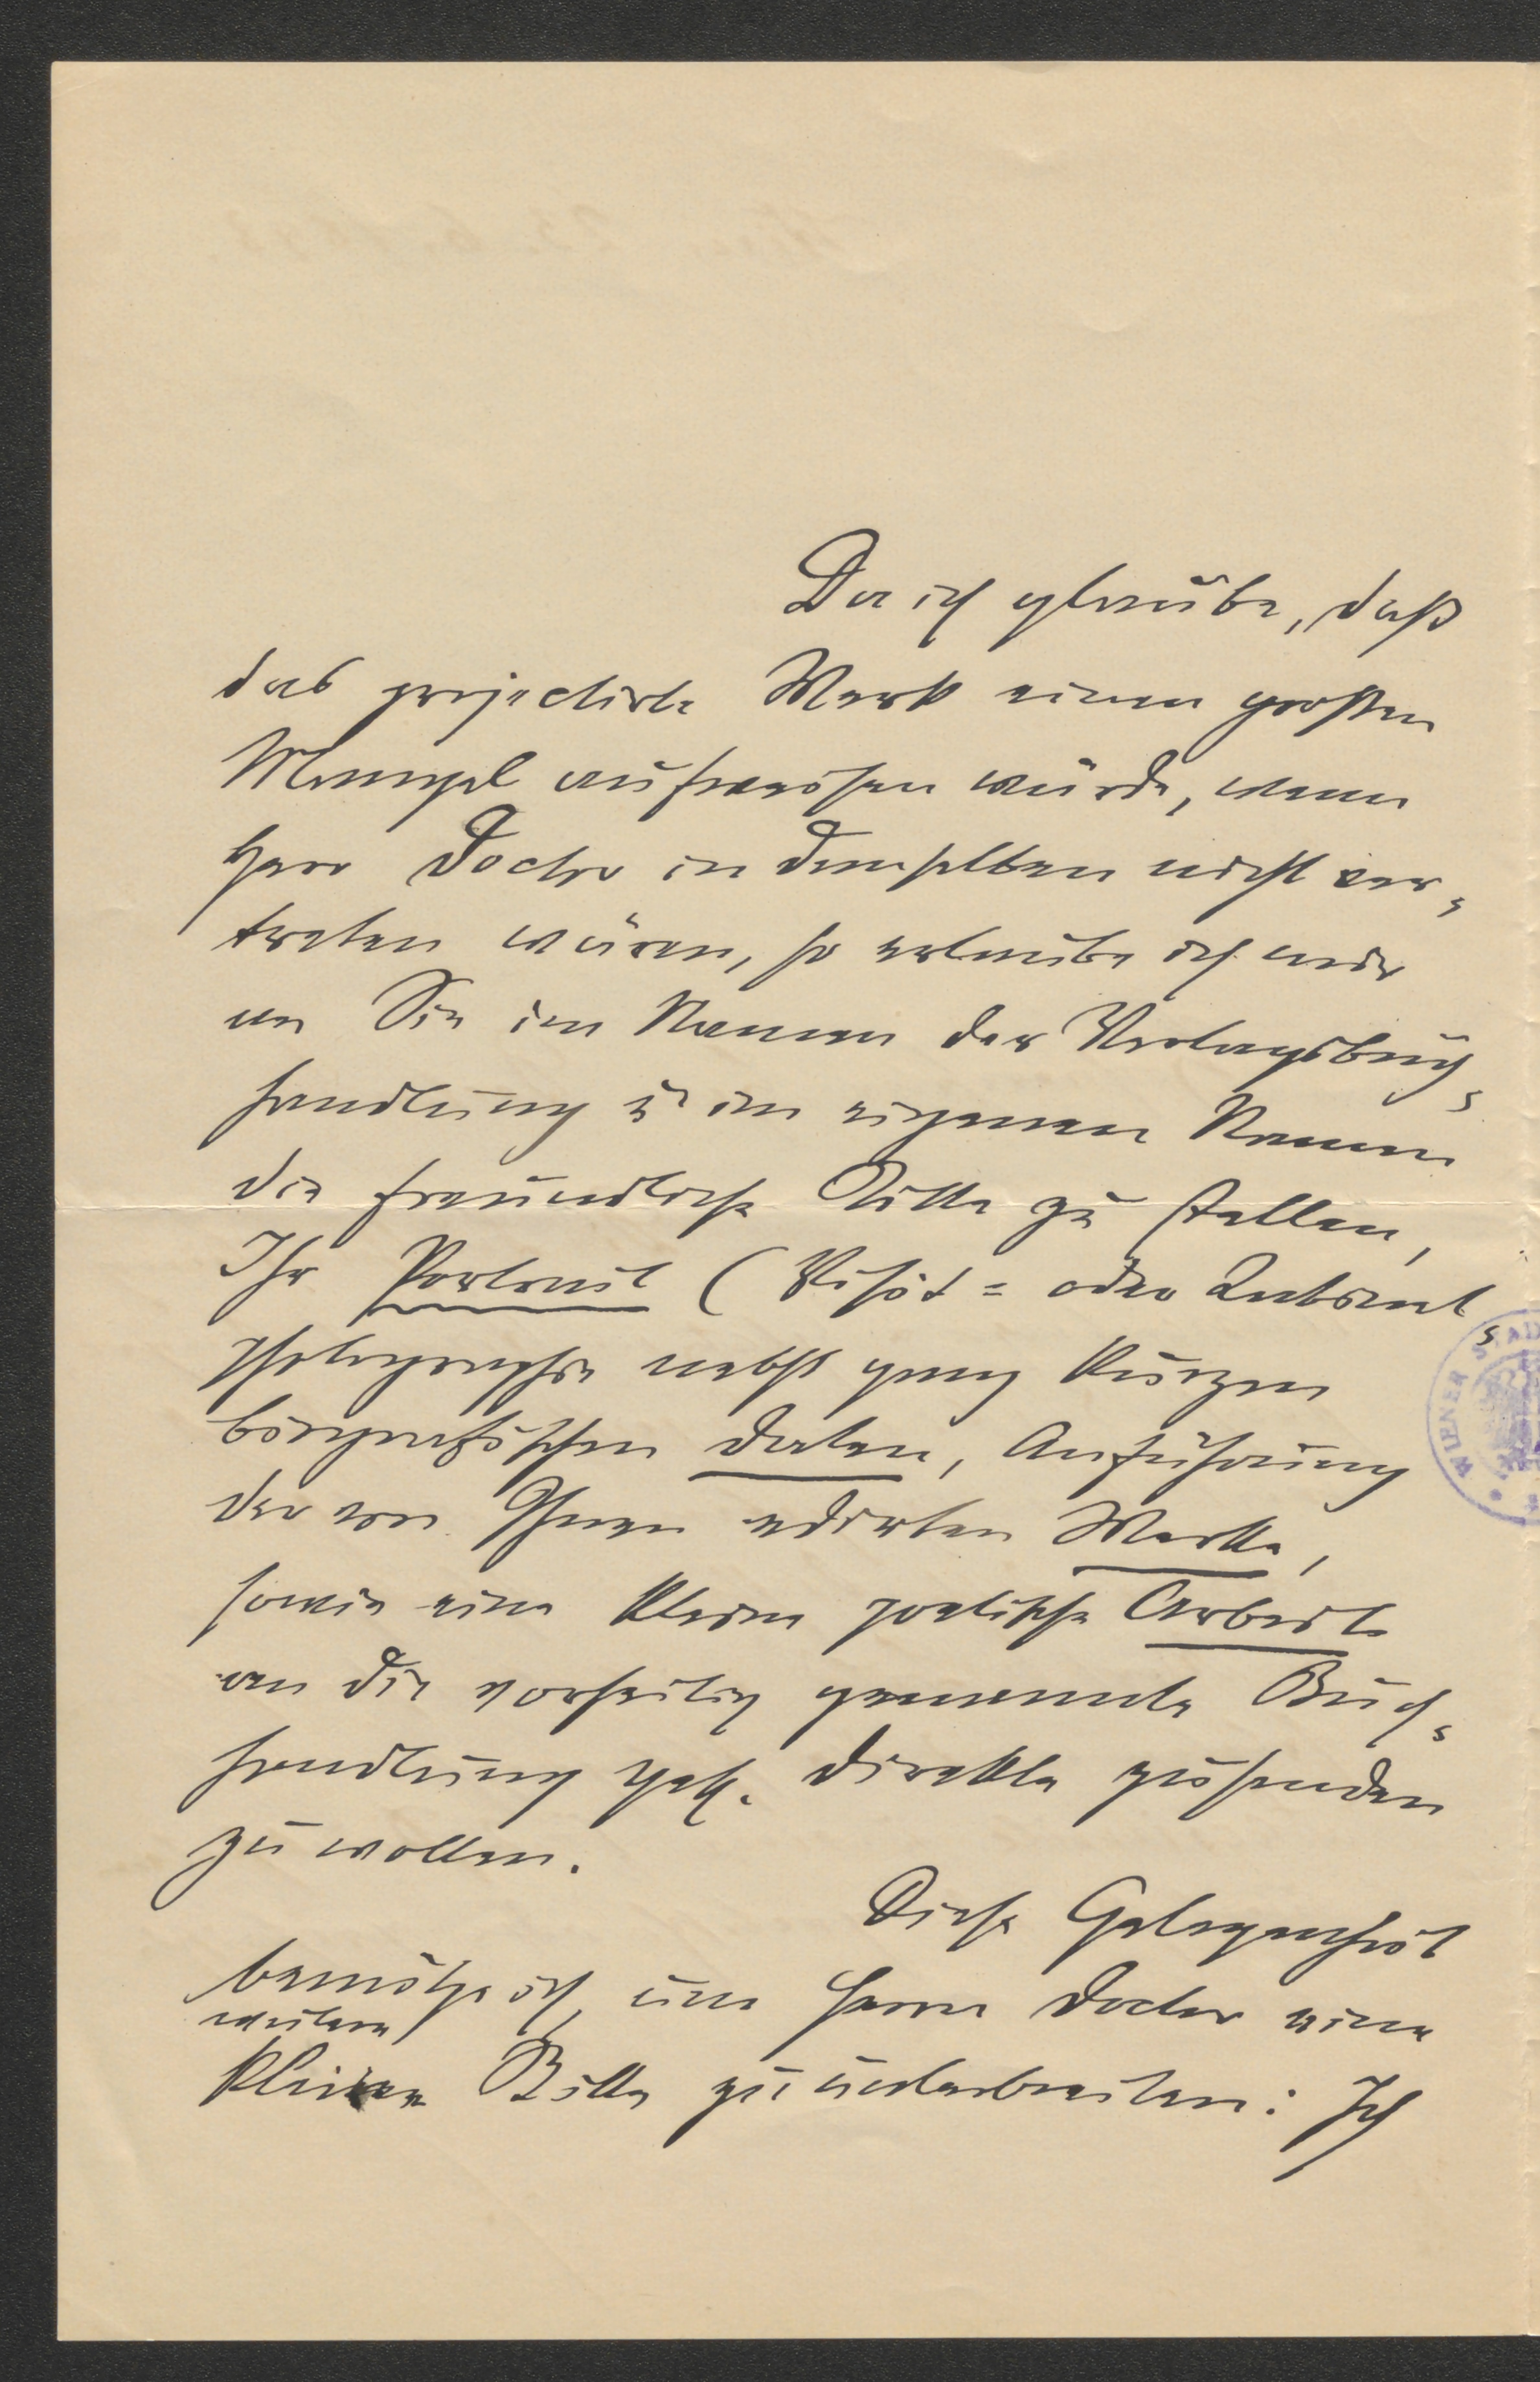 Da ich glaube, daß
das projectirte Werk einen großen
Mangel aufweisen würde, wenn
Herr Doctor in demselben nicht ver-
treten wären, so erlaube ich mir
an Sie im Namen der Verlagsbuch-
handlung u im eigenen Namen
die freundliche Bitte zu stellen,
Ihr Portrait (Visit- oder Cabinet-
photographie nebst ganz kurzen
biografischen Daten, Anführung
der von Ihnen edirten Werke,
sowie eine kleine poetische Arbeit
an die vorseitig genannte Buch-
handlung gefl. direkte zusenden
zu wollen.
Diese Gelegenheit
benütze ich, um Herrn Doctor eine
weitere
kleine Bitte zu unterbreiten: Ich
WIENER STAD